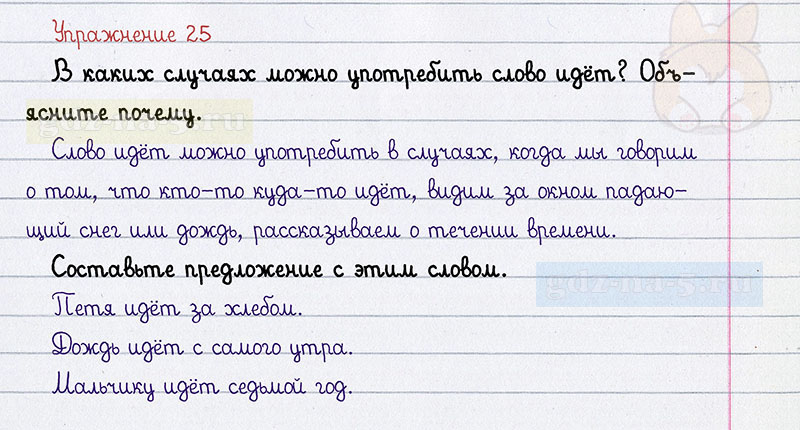 Упражнение 25
В каких случаях можно употребить слово идёт? Объ-
ясните почему.
gdz-na-5.ru
Слово идёт можно употребить в случаях, когда мы говорим
о том, что кто-то куда-то идёт, видим за окном падаю-
щий снег или дождь, рассказываем о течении времени.
Составьте предложение с этим словом.
gdz-na-5.ru
Петя идёт за хлебом.
Дождь идёт с самого утра.
Мальчику идёт седьмой год.